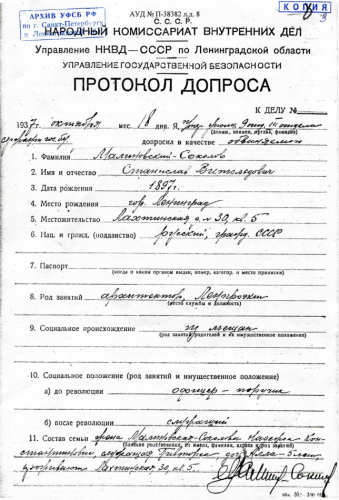 АРХИВ УФСБ РФ
по г. Санкт-Петербургу
и Ленинградской
АУД № П-38382 л.д. 8
КОПИЯ
С. С. С. Р.
НАРОДНЫЙ КОМИССАРИАТ ВНУТРЕННИХ ДЕЛ
Управление НКВД—СССР по Ленинградской области
УПРАВЛЕНИЕ ГОСУДАРСТВЕННОЙ БЕЗОПАСНОСТИ
ПРОТОКОЛ ДОПРОСА
К ДЕЛУ №
1937 г. октября мес. 18 дня. Я, отдела
(должн., наимен. органа, фамилия)
допросил в качестве обвиняемого
1. Фамилия Малиновский-Соколов
2. Имя и отчество Станислав Витольдович
3. Дата рождения 1897 г.
4. Место рождения гор. Ленинград
5. Местожительство Лахтинская д. 30, кв. 5
6. Нац. и гражд. (подданство) русский, гражд. СССР
7. Паспорт
(когда и каким органом выдан, номер, категор. и место приписки)
8. Род занятий архитектор, Ленпроект
(место службы и должность)
9. Социальное происхождение из мещан
(род занятий родителей и их имущественное положение)
10. Социальное положение (род занятий и имущественное положение)
а) до революции офицер – поручик
б) после революции служащий
11. Состав семьи жена Малиновская-Соколова
(близкие родственники, их имена, фамилии, адреса, род занятий)
Лахтинская 30, кв. 5